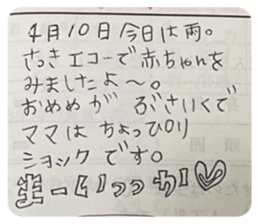 4月10日今日は雨。
さっきエコーで赤ちゃんを
みましたよ〜。
おめめが ぶさいくで
ママは ちょっぴり
ショックです。
まーいっっか♡